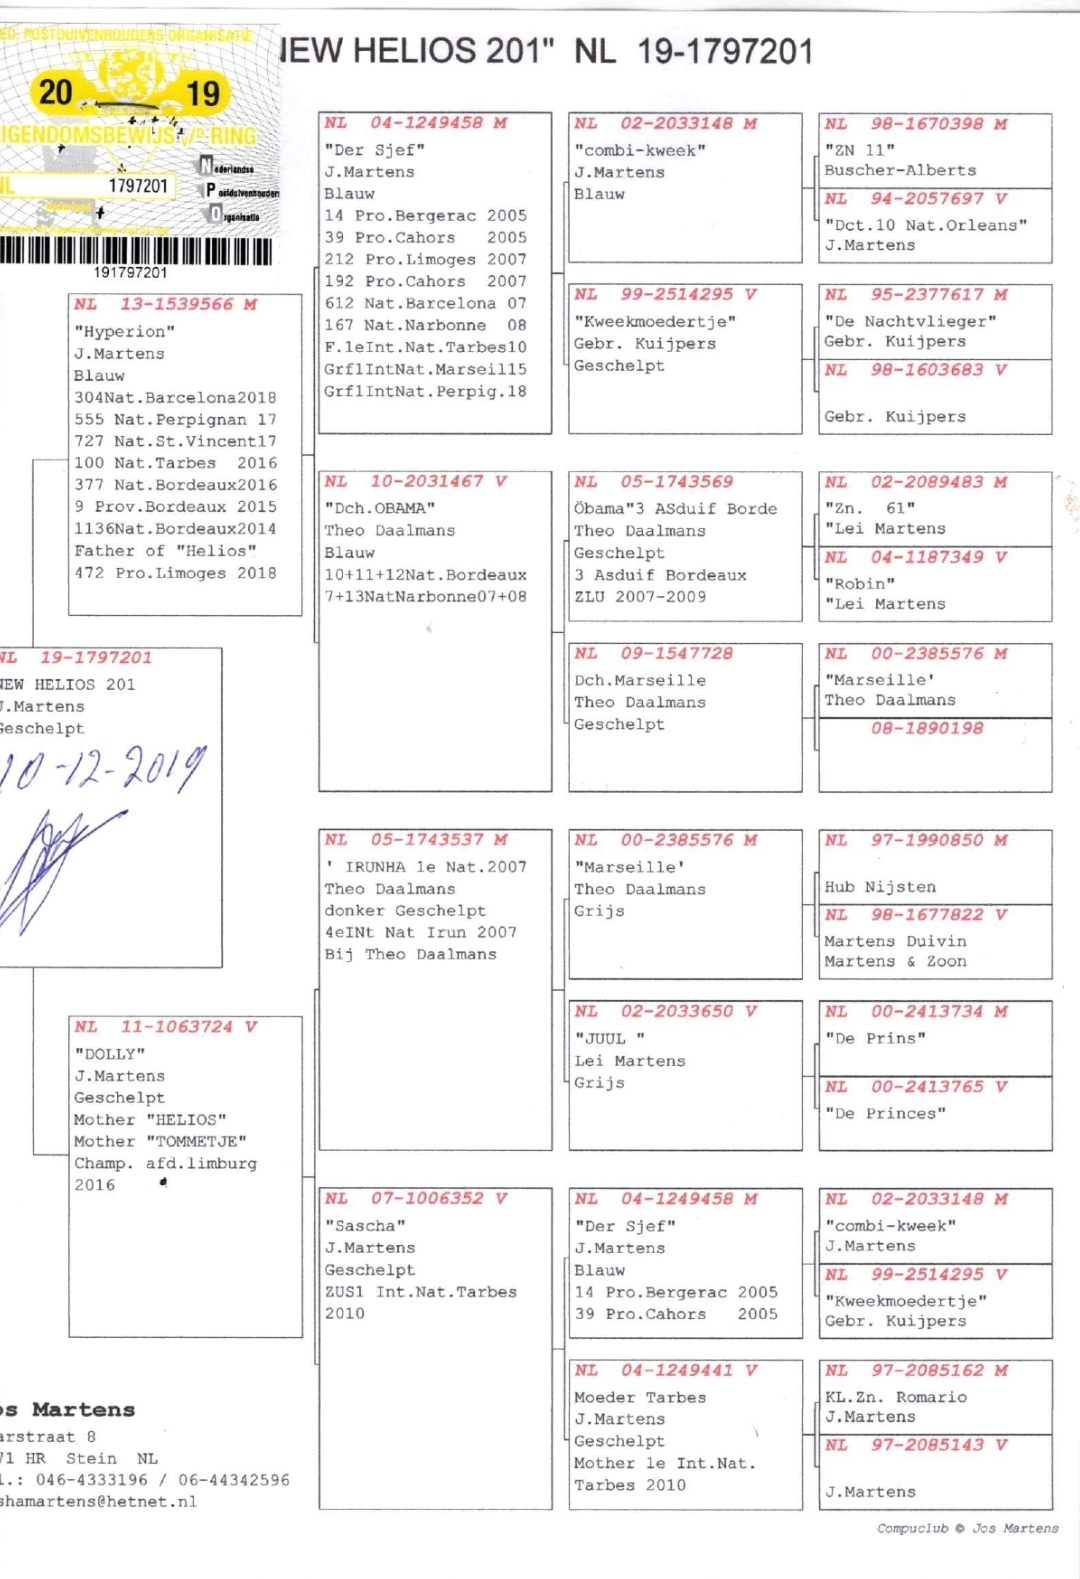 ED. POSTDUIVENHOUDERS ORGANISATIE
20 19
IGENDOMSBEWIJS V/D RING
NL 1797201
Nederlandse
Postduivenhouders
Organisatie
191797201
NEW HELIOS 201" NL 19-1797201
NL 13-1539566 M
"Hyperion"
J.Martens
Blauw
304Nat.Barcelona2018
555 Nat.Perpignan 17
727 Nat.St.Vincent17
100 Nat.Tarbes 2016
377 Nat.Bordeaux2016
9 Prov.Bordeaux 2015
1136Nat.Bordeaux2014
Father of "Helios"
472 Pro.Limoges 2018
NL 19-1797201
NEW HELIOS 201
J.Martens
Geschelpt
10-12-2019
NL 11-1063724 V
"DOLLY"
J.Martens
Geschelpt
Mother "HELIOS"
Mother "TOMMETJE"
Champ. afd.limburg
2016
os Martens
arstraat 8
71 HR Stein NL
l.: 046-4333196 / 06-44342596
shamartens@hetnet.nl
NL 04-1249458 M
"Der Sjef"
J.Martens
Blauw
14 Pro.Bergerac 2005
39 Pro.Cahors 2005
212 Pro.Limoges 2007
192 Pro.Cahors 2007
612 Nat.Barcelona 07
167 Nat.Narbonne 08
F.1eInt.Nat.Tarbes10
Grf1IntNat.Marseil15
Grf1IntNat.Perpig.18
NL 10-2031467 V
"Dch.OBAMA"
Theo Daalmans
Blauw
10+11+12Nat.Bordeaux
7+13NatNarbonne07+08
NL 05-1743537 M
' IRUNHA 1e Nat.2007
Theo Daalmans
donker Geschelpt
4eINt Nat Irun 2007
Bij Theo Daalmans
NL 07-1006352 V
"Sascha"
J.Martens
Geschelpt
ZUS1 Int.Nat.Tarbes
2010
NL 02-2033148 M
"combi-kweek"
J.Martens
Blauw
NL 99-2514295 V
"Kweekmoedertje"
Gebr. Kuijpers
Geschelpt
NL 05-1743569
Öbama"3 ASduif Borde
Theo Daalmans
Geschelpt
3 Asduif Bordeaux
ZLU 2007-2009
NL 09-1547728
Dch.Marseille
Theo Daalmans
Geschelpt
NL 00-2385576 M
"Marseille'
Theo Daalmans
Grijs
NL 02-2033650 V
"JUUL "
Lei Martens
Grijs
NL 04-1249458 M
"Der Sjef"
J.Martens
Blauw
14 Pro.Bergerac 2005
39 Pro.Cahors 2005
NL 04-1249441 V
Moeder Tarbes
J.Martens
Geschelpt
Mother 1e Int.Nat.
Tarbes 2010
NL 98-1670398 M
"ZN 11"
Buscher-Alberts
NL 94-2057697 V
"Dct.10 Nat.Orleans"
J.Martens
NL 95-2377617 M
"De Nachtvlieger"
Gebr. Kuijpers
NL 98-1603683 V
Gebr. Kuijpers
NL 02-2089483 M
"Zn. 61"
"Lei Martens
NL 04-1187349 V
"Robin"
"Lei Martens
NL 00-2385576 M
"Marseille'
Theo Daalmans
08-1890198
NL 97-1990850 M
Hub Nijsten
NL 98-1677822 V
Martens Duivin
Martens & Zoon
NL 00-2413734 M
"De Prins"
NL 00-2413765 V
"De Princes"
NL 02-2033148 M
"combi-kweek"
J.Martens
NL 99-2514295 V
"Kweekmoedertje"
Gebr. Kuijpers
NL 97-2085162 M
KL.Zn. Romario
J.Martens
NL 97-2085143 V
J.Martens
Compuclub © Jos Martens